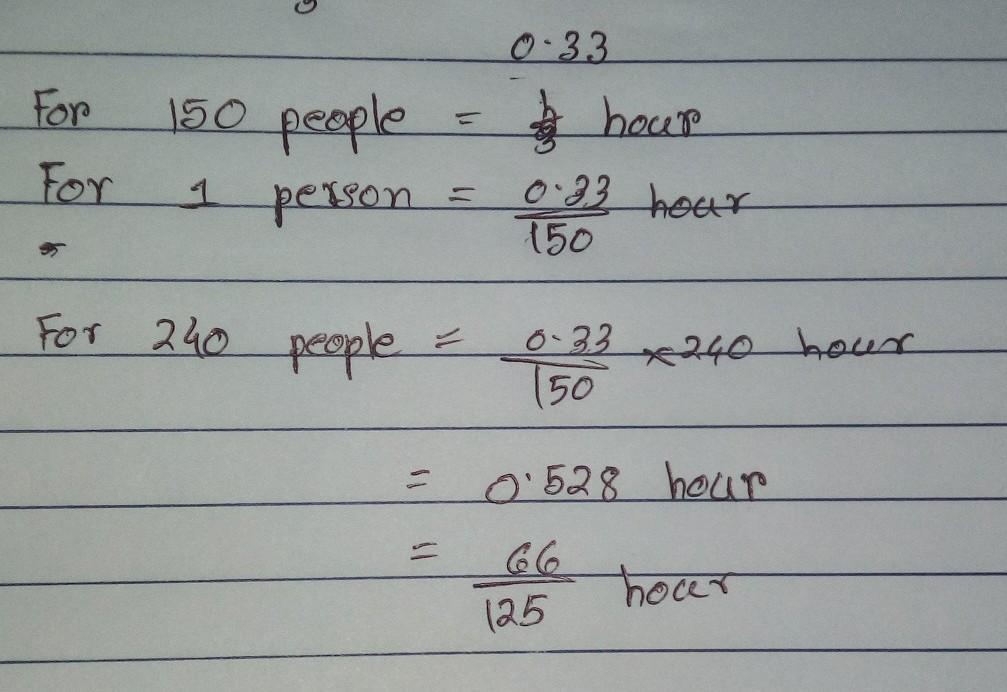 0.33
For 150 people = hour
For 1 person = 0.33/150 hour
For 240 people = 0.33/150 × 240 hour
= 0.528 hour
= 66/125 hour